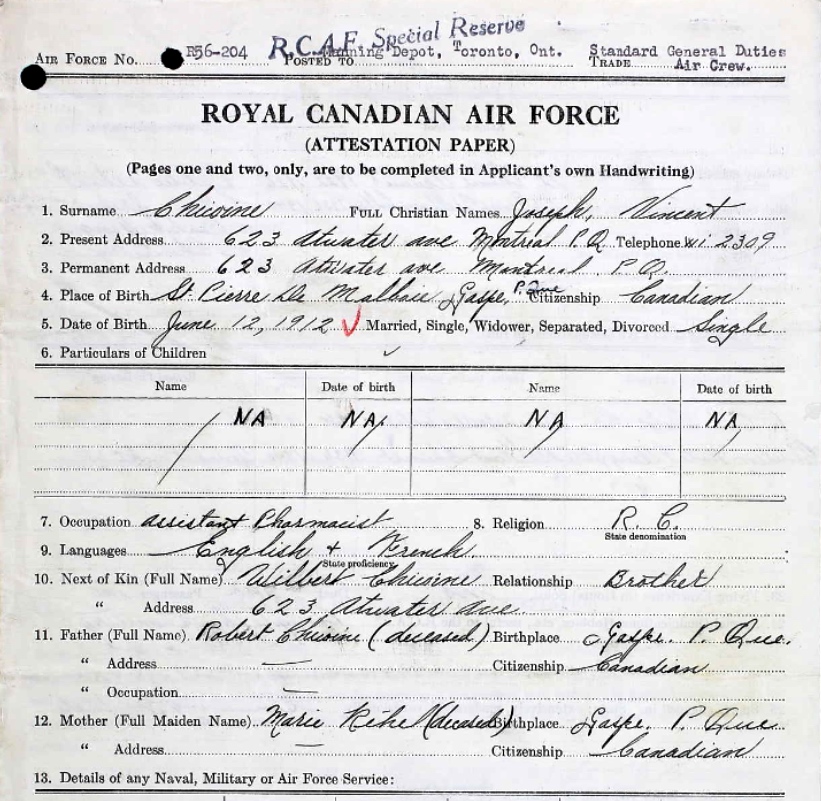 R.C.A.F. Special Reserve
AIR FORCE No. R56-204 POSTED TO Manning Depot, Toronto, Ont. TRADE Standard General Duties
Air Crew.
ROYAL CANADIAN AIR FORCE
(ATTESTATION PAPER)
(Pages one and two, only, are to be completed in Applicant's own Handwriting)
1. Surname Chicoine FULL Christian Names Joseph, Vincent
2. Present Address 623 Atwater ave Montreal P.Q. Telephone Wi 2309
3. Permanent Address 623 Atwater ave Montreal P.Q.
4. Place of Birth St. Pierre De Malbaie Gaspe, P. Que Citizenship Canadian
5. Date of Birth June 12, 1912 Married, Single, Widower, Separated, Divorced Single
6. Particulars of Children
Name Date of birth Name Date of birth
NA NA NA NA
7. Occupation assistant Pharmacist 8. Religion R. C.
State denomination
9. Languages English + French
State proficiency
10. Next of Kin (Full Name) Wilbert Chicoine Relationship Brother
" Address 623 Atwater Ave.
11. Father (Full Name) Robert Chicoine (deceased) Birthplace Gaspe. P. Que.
" Address — Citizenship Canadian
" Occupation —
12. Mother (Full Maiden Name) Marie (deceased) Birthplace Gaspe. P. Que
" Address — Citizenship Canadian
13. Details of any Naval, Military or Air Force Service: